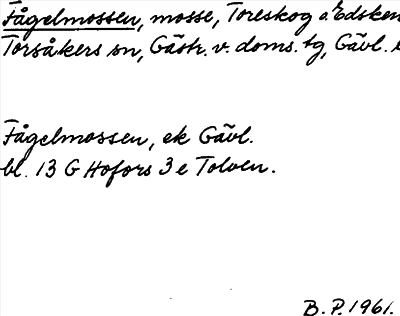 Fågelmossen, mosse, Toreskog o. Edsken
Torsåkers sn, Gästr. v. doms. tg, Gävl.
Fågelmossen, ek Gävl.
bl. 13 G Hofors 3 e Tolven.
B. P. 1961.